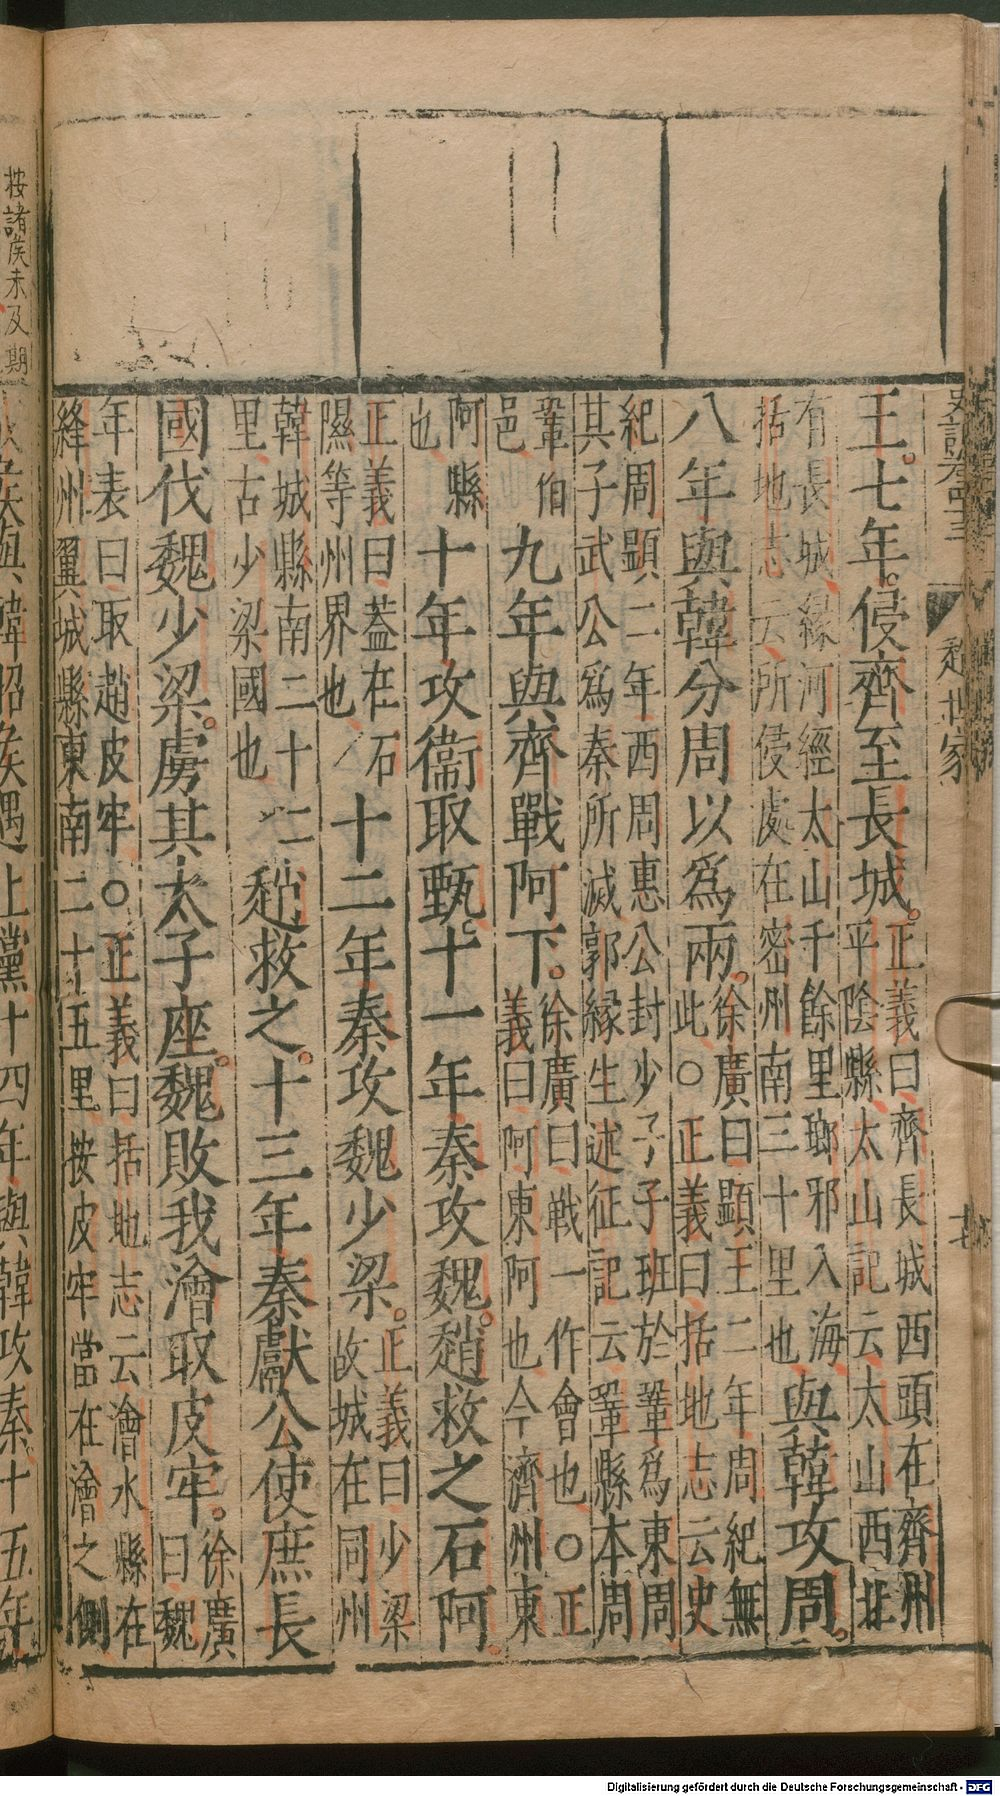 史記卷四十三　趙世家　十七
王七年。侵齊至長城。正義曰齊長城西頭在齊州
平陰縣太山記云太山西北
有長城緣河經太山千餘里瑯邪入海
括地志云所侵處在密州南三十里也與韓攻周。
八年與韓分周以爲兩。徐廣曰顯王二年周紀無
此○正義曰括地志云史
紀周顯二年西周惠公封少子子班於鞏爲東周
其子武公爲秦所滅郭緣生述征記云鞏縣本周
鞏伯
邑九年與齊戰阿下。徐廣曰戦一作會也○正
義曰阿東阿也今濟州東
阿縣
也十年攻衞取甄。十一年秦攻魏。趙救之石阿。
正義曰蓋在石
隰等州界也十二年秦攻魏少梁。正義曰少梁
故城在同州
韓城縣南二十二
里古少梁國也趙救之。十三年秦獻公使庶長
國伐魏少梁。虜其太子座。魏敗我澮取皮牢。徐廣
曰魏
年表曰取趙皮牢○正義曰括地志云澮水縣在
絳州翼城縣東南二十五里按皮牢當在澮之側
按諸侯未及期
與韓昭侯遇上黨十四年與韓攻秦十五年
Digitalisierung gefördert durch die Deutsche Forschungsgemeinschaft - DFG